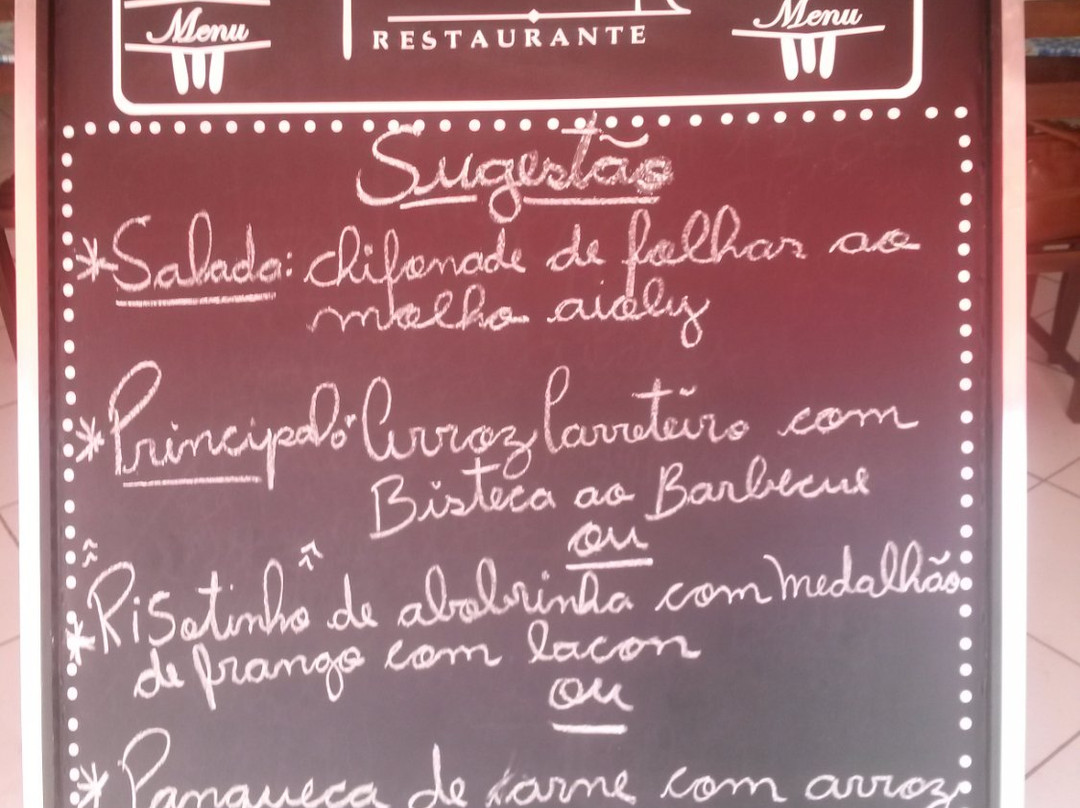 Menu
Menu
RESTAURANTE
Sugestão
*Salada: chifonade de folhas ao
molho aioly
*Principal: Arroz Carreteiro com
Bisteca ao Barbecue
ou
*Risotinho de abobrinha com medalhão
de frango com bacon
ou
*Panqueca de carne com arroz